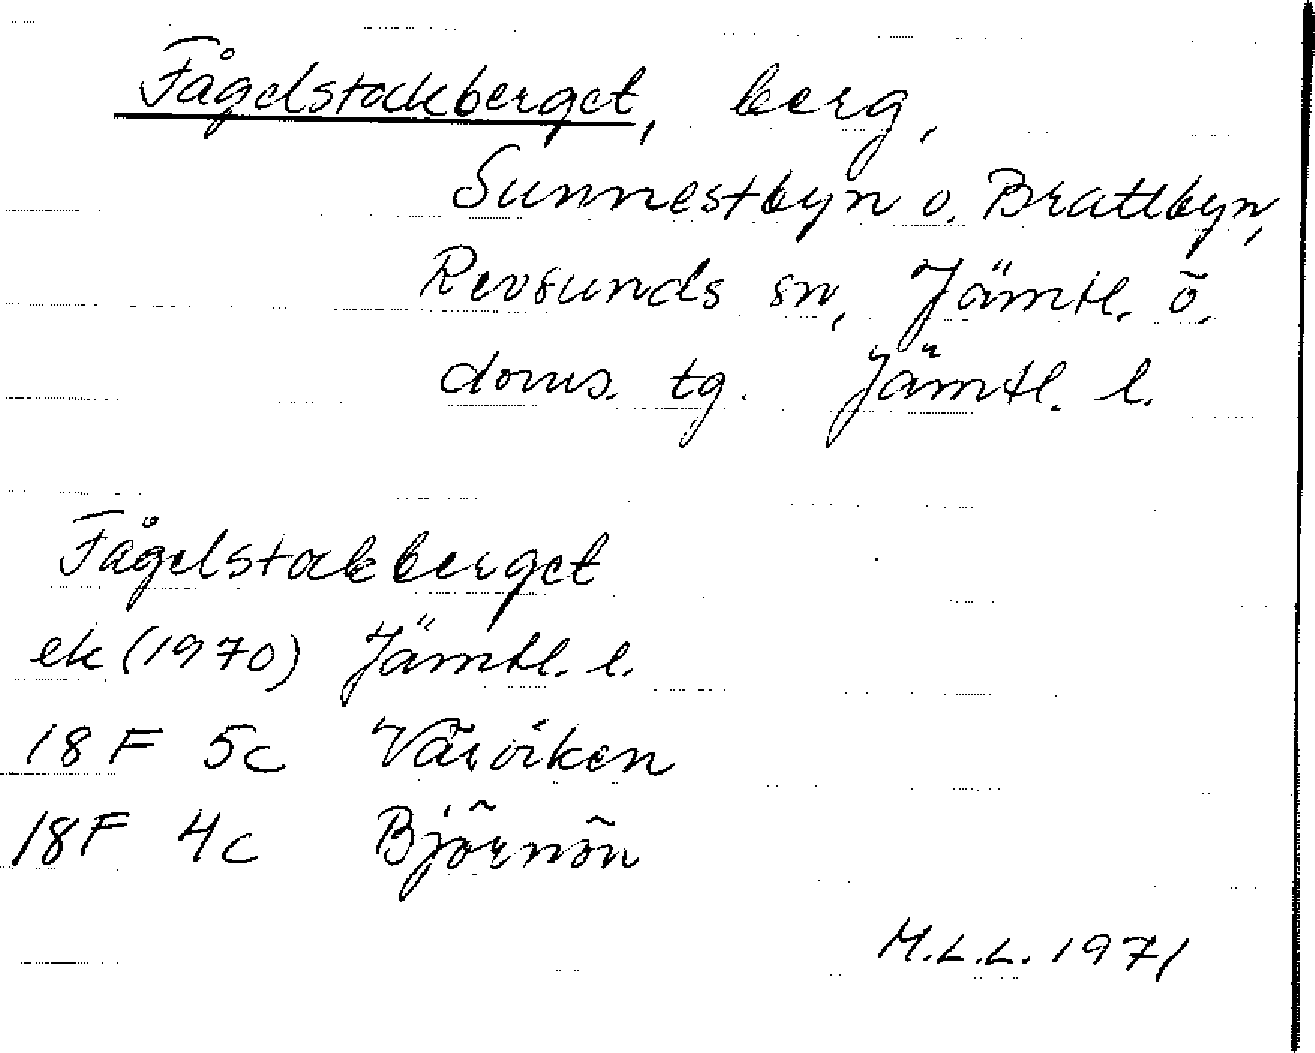 Fågelstockberget, berg,
Sunnestbyn o. Brattbyn,
Revsunds sn, Jämtl. ö.
doms. tg. Jämtl. l.
Fågelstockberget
ek (1970) Jämtl. l.
18 F 5c Värviken
18F 4c Björnön
M.L.L. 1971